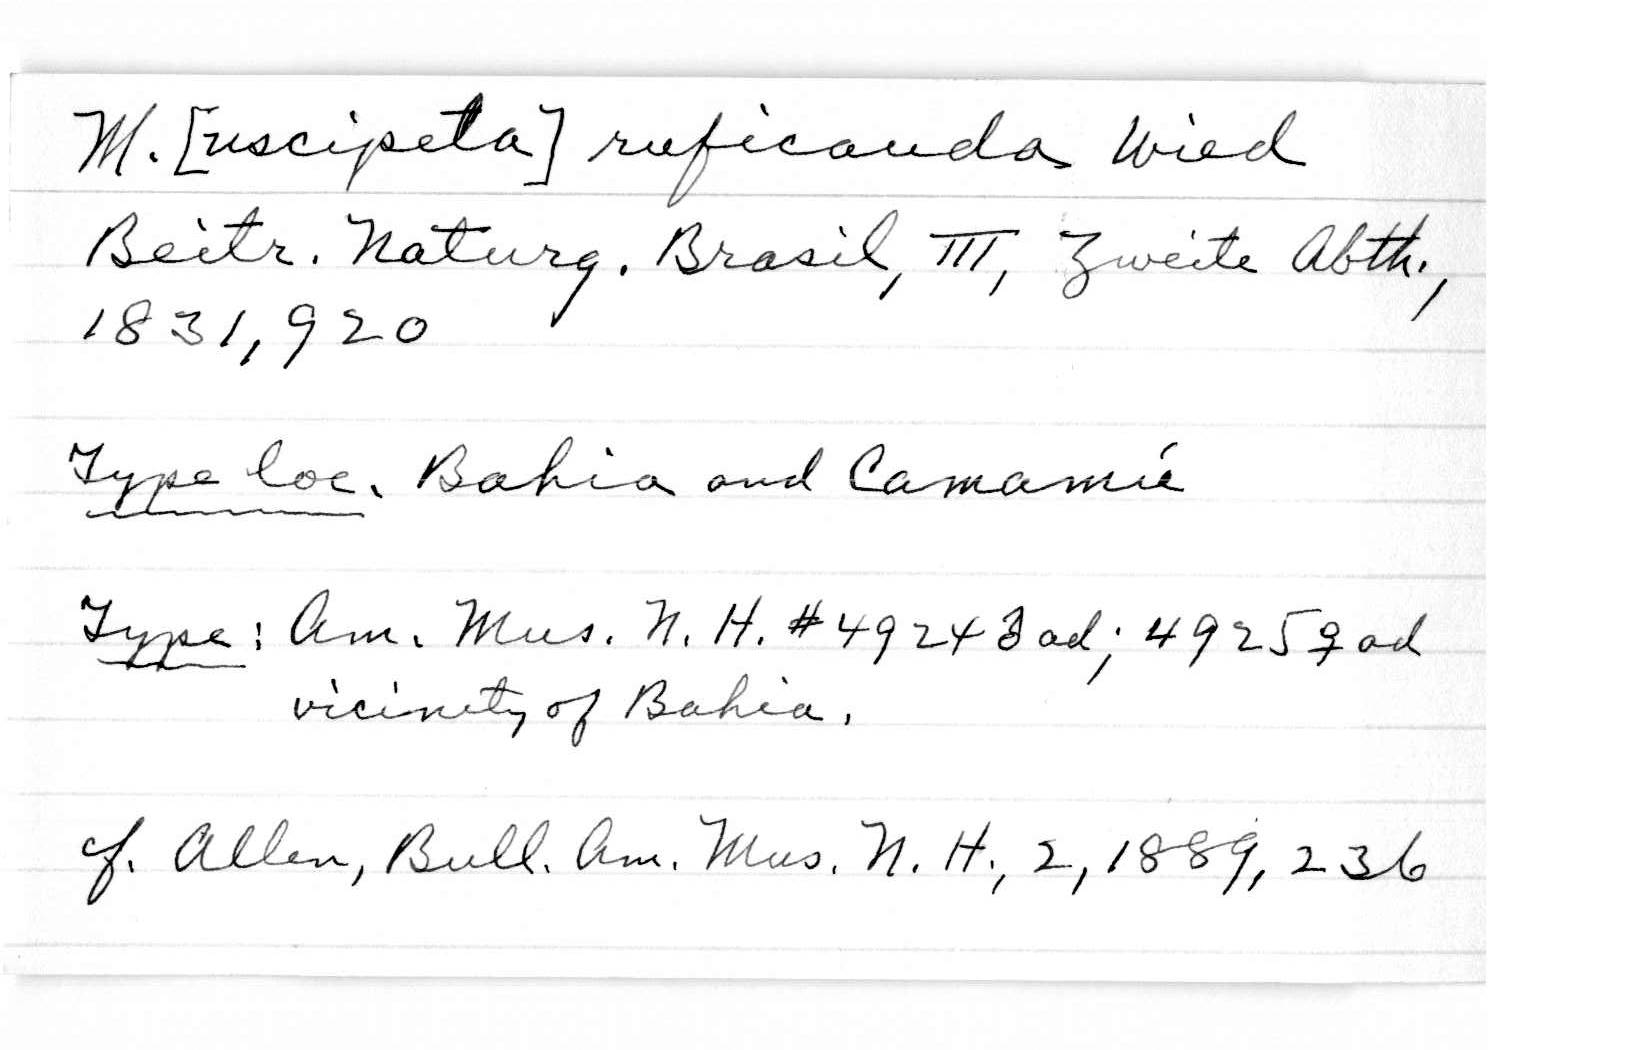 M. [uscipeta] ruficauda Wied
Beitr. Naturg. Brasil, III, Zweite Abth.,
1831, 920
Type loc. Bahia and Camamú
Type: Am. Mus. N. H. #4924 ♂ ad; 4925 ♀ ad
vicinity of Bahia.
cf. Allen, Bull. Am. Mus. N. H., 2, 1889, 236